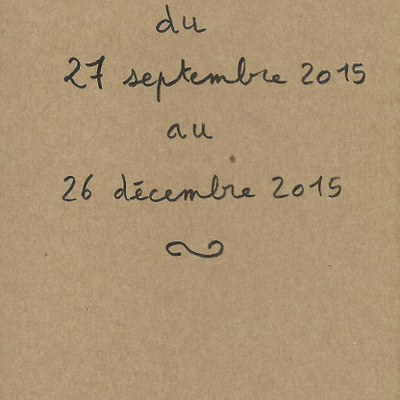 du
27 septembre 2015
au
26 décembre 2015